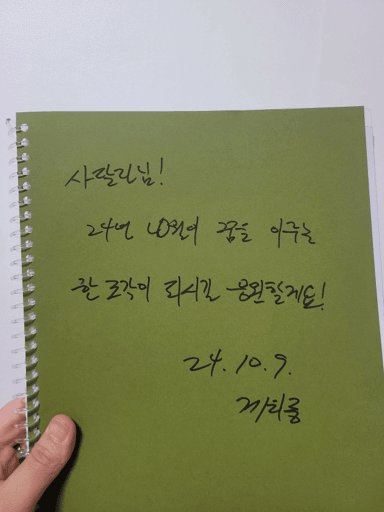 사탈리님!
24년 10월이 꿈을 이루는
한 조각이 되시길 응원할게요!
24. 10. 9.